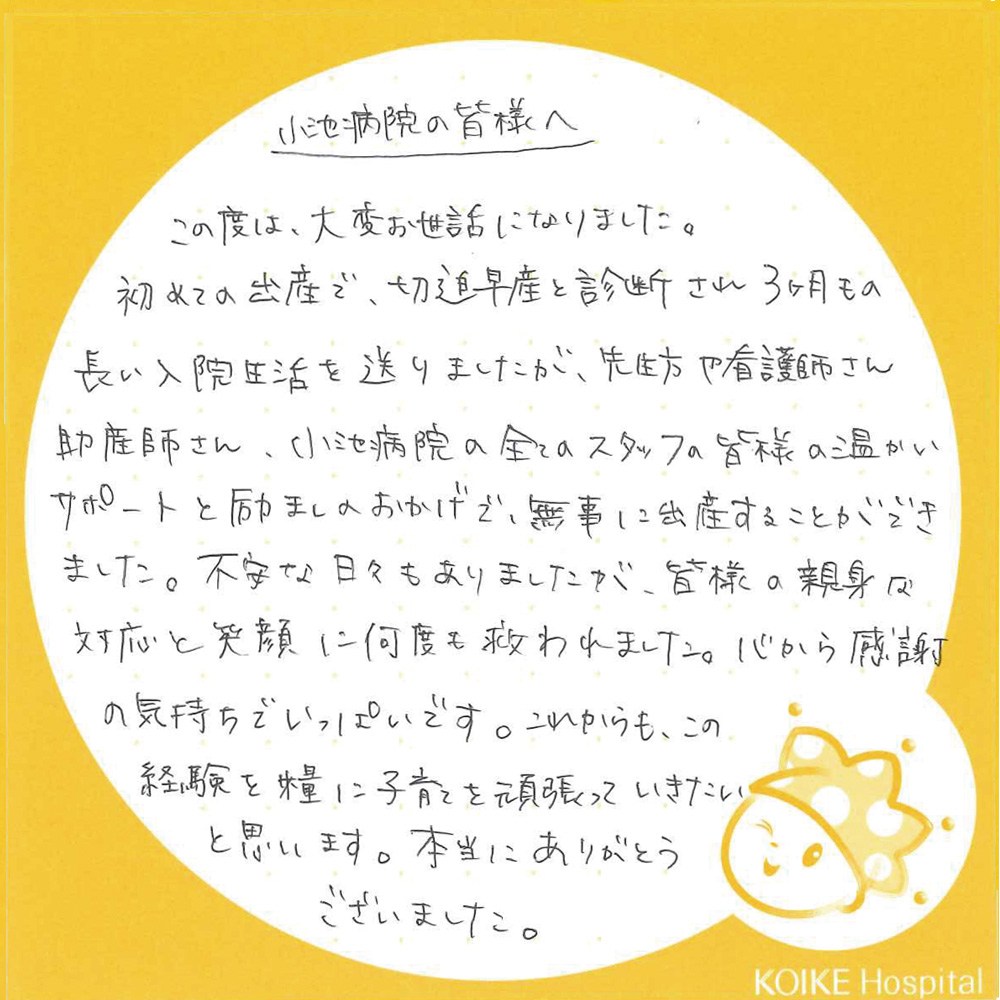 小池病院の皆様へ
この度は、大変お世話になりました。
初めての出産で、切迫早産と診断され3ヶ月もの
長い入院生活を送りましたが、先生方や看護師さん
助産師さん、小池病院の全てのスタッフの皆様の温かい
サポートと励ましのおかげで、無事に出産することができ
ました。不安な日々もありましたが、皆様の親身な
対応と笑顔に何度も救われました。心から感謝
の気持ちでいっぱいです。これからも、この
経験を糧に子育てを頑張っていきたい
と思います。本当にありがとう
ございました。
KOIKE Hospital